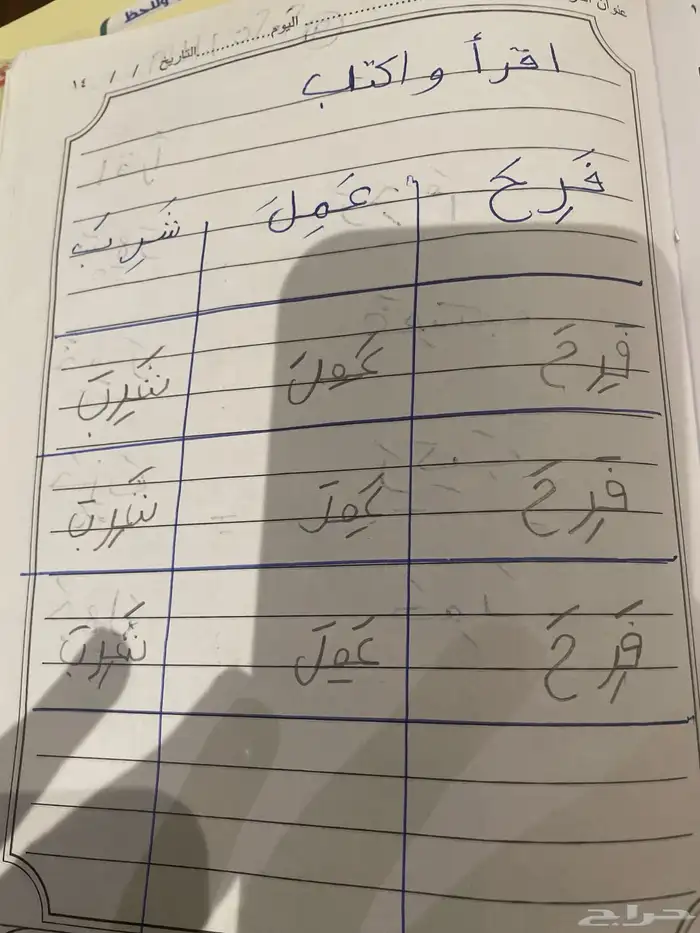 ولاحظ
عنوان
اليوم التاريخ / / ١٤
اقرأ و اكتب
فَرِحَ عَمِلَ شَرِبَ
فَرِحَ عَمِلَ شَرِبَ
فَرِحَ عَمِلَ شَرِبَ
فَرِحَ عَمِلَ شَرِبَ
حراج